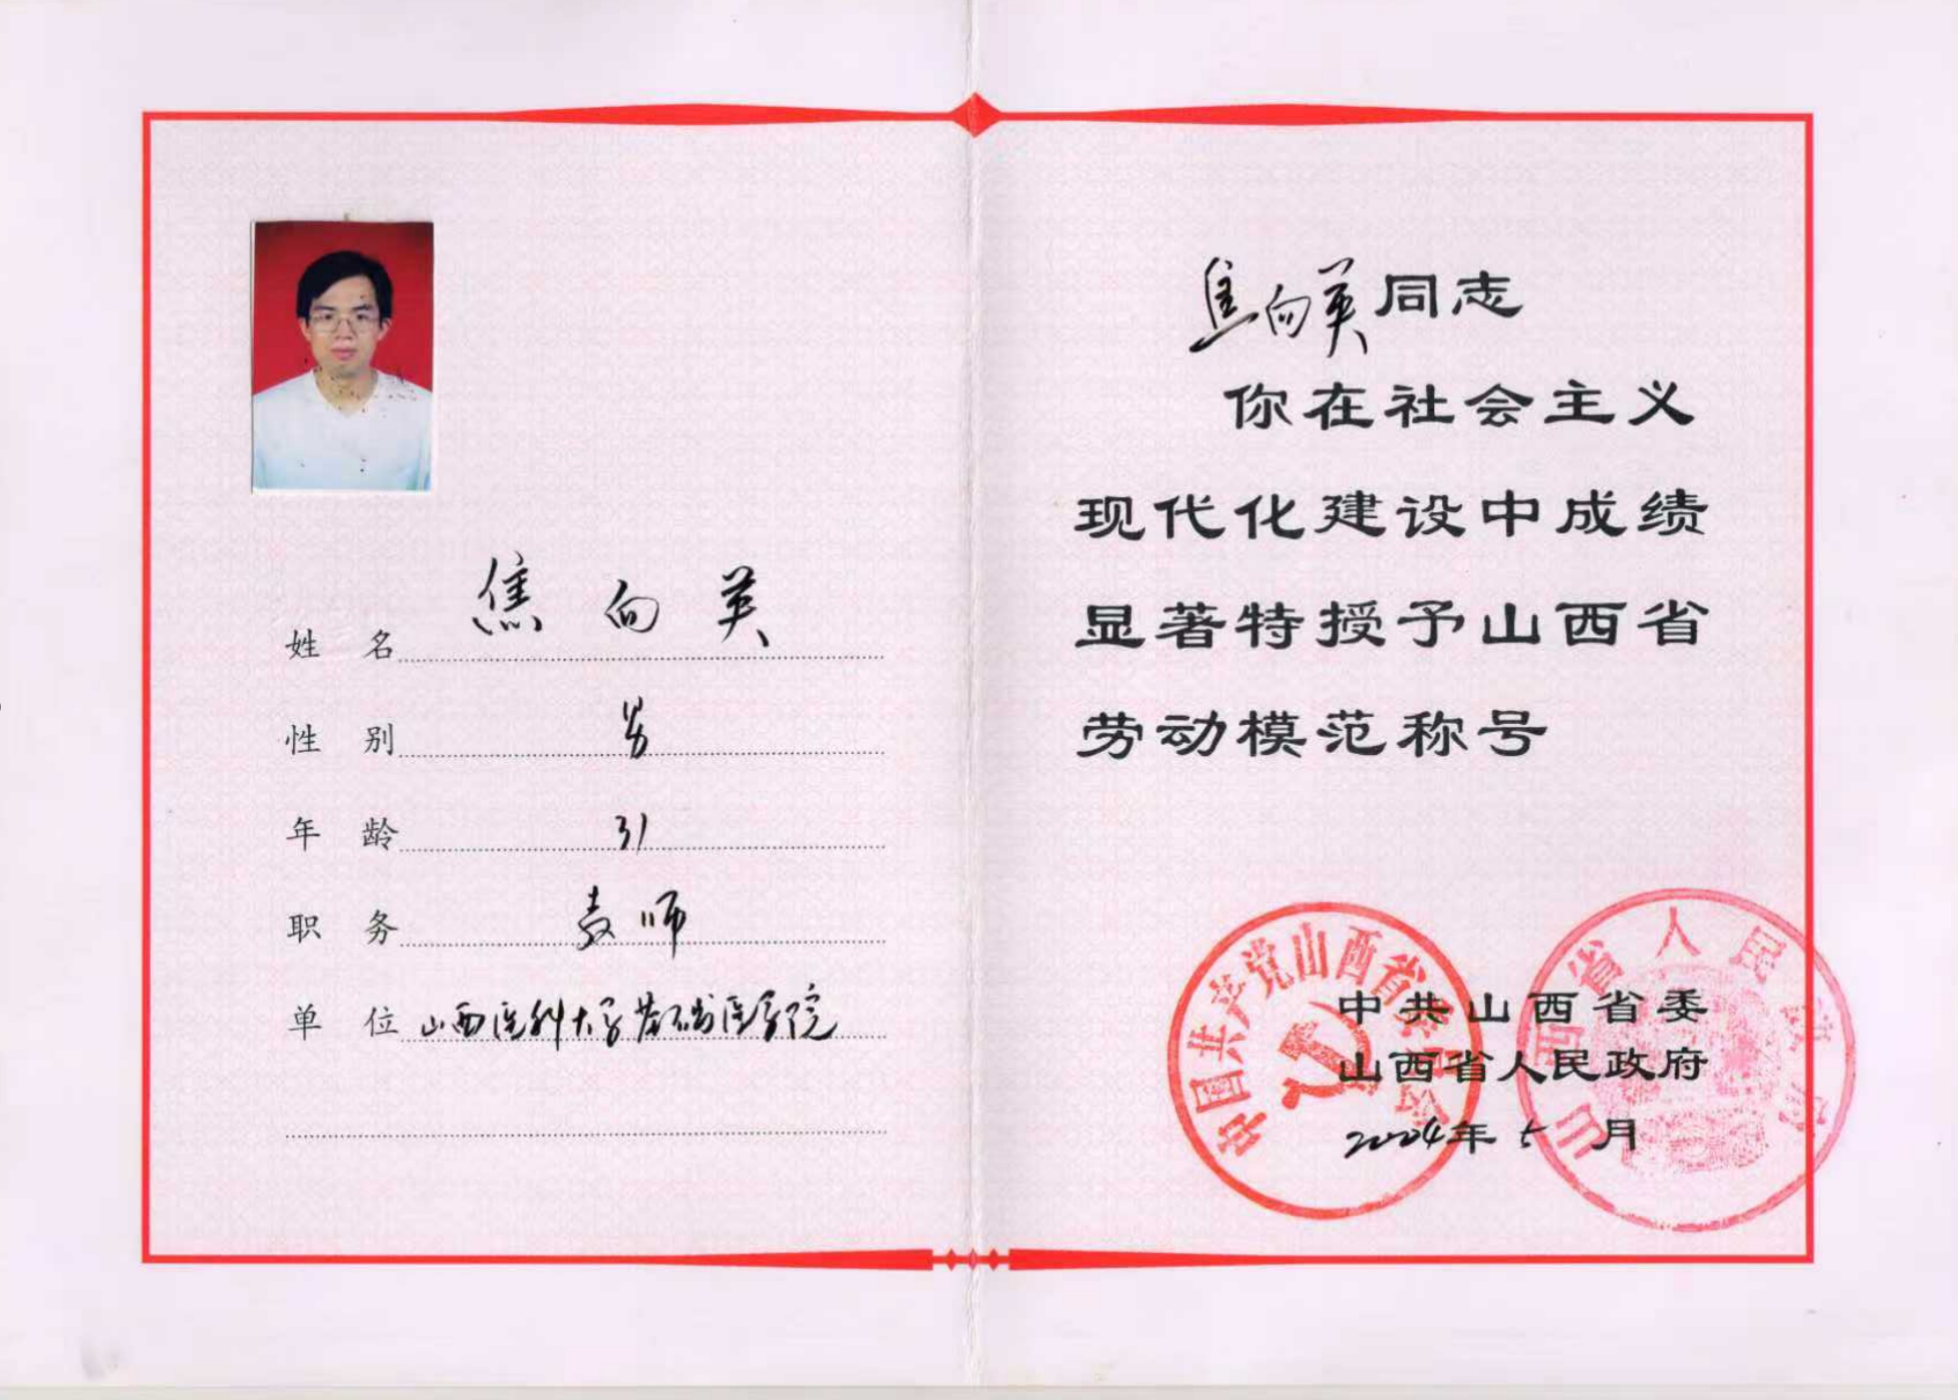 姓 名 焦向英
性 别 男
年 龄 31
职 务 教师
单 位 山西医科大学基础医学院
焦向英同志
你在社会主义
现代化建设中成绩
显著特授予山西省
劳动模范称号
中国共产党山西省委员会
山西省人民政府
中共山西省委
山西省人民政府
2004年5月